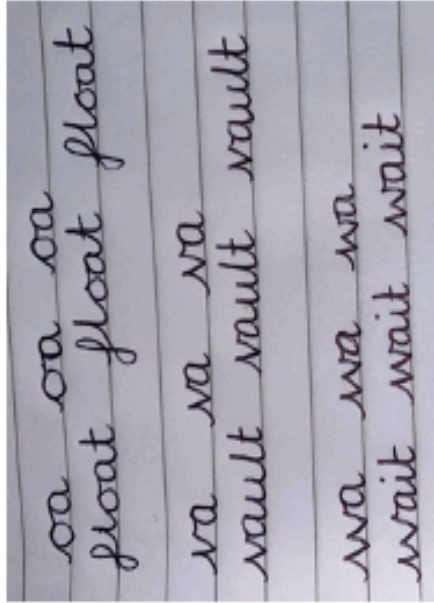 oa oa oa oa
float float float
va va va
vault vault vault
wa wa wa
wait wait wait